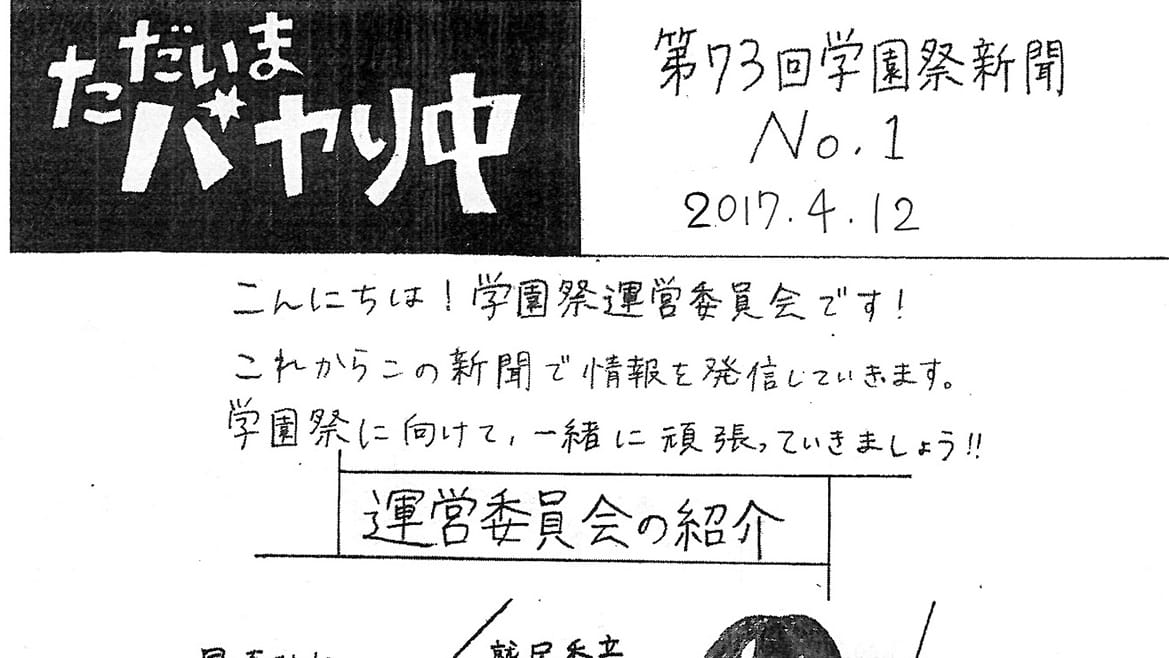 ただいま
バヤリ中
第73回学園祭新聞
No.1
2017.4.12
こんにちは!学園祭運営委員会です!
これからこの新聞で情報を発信していきます。
学園祭に向けて、一緒に頑張っていきましょう!!
運営委員会の紹介